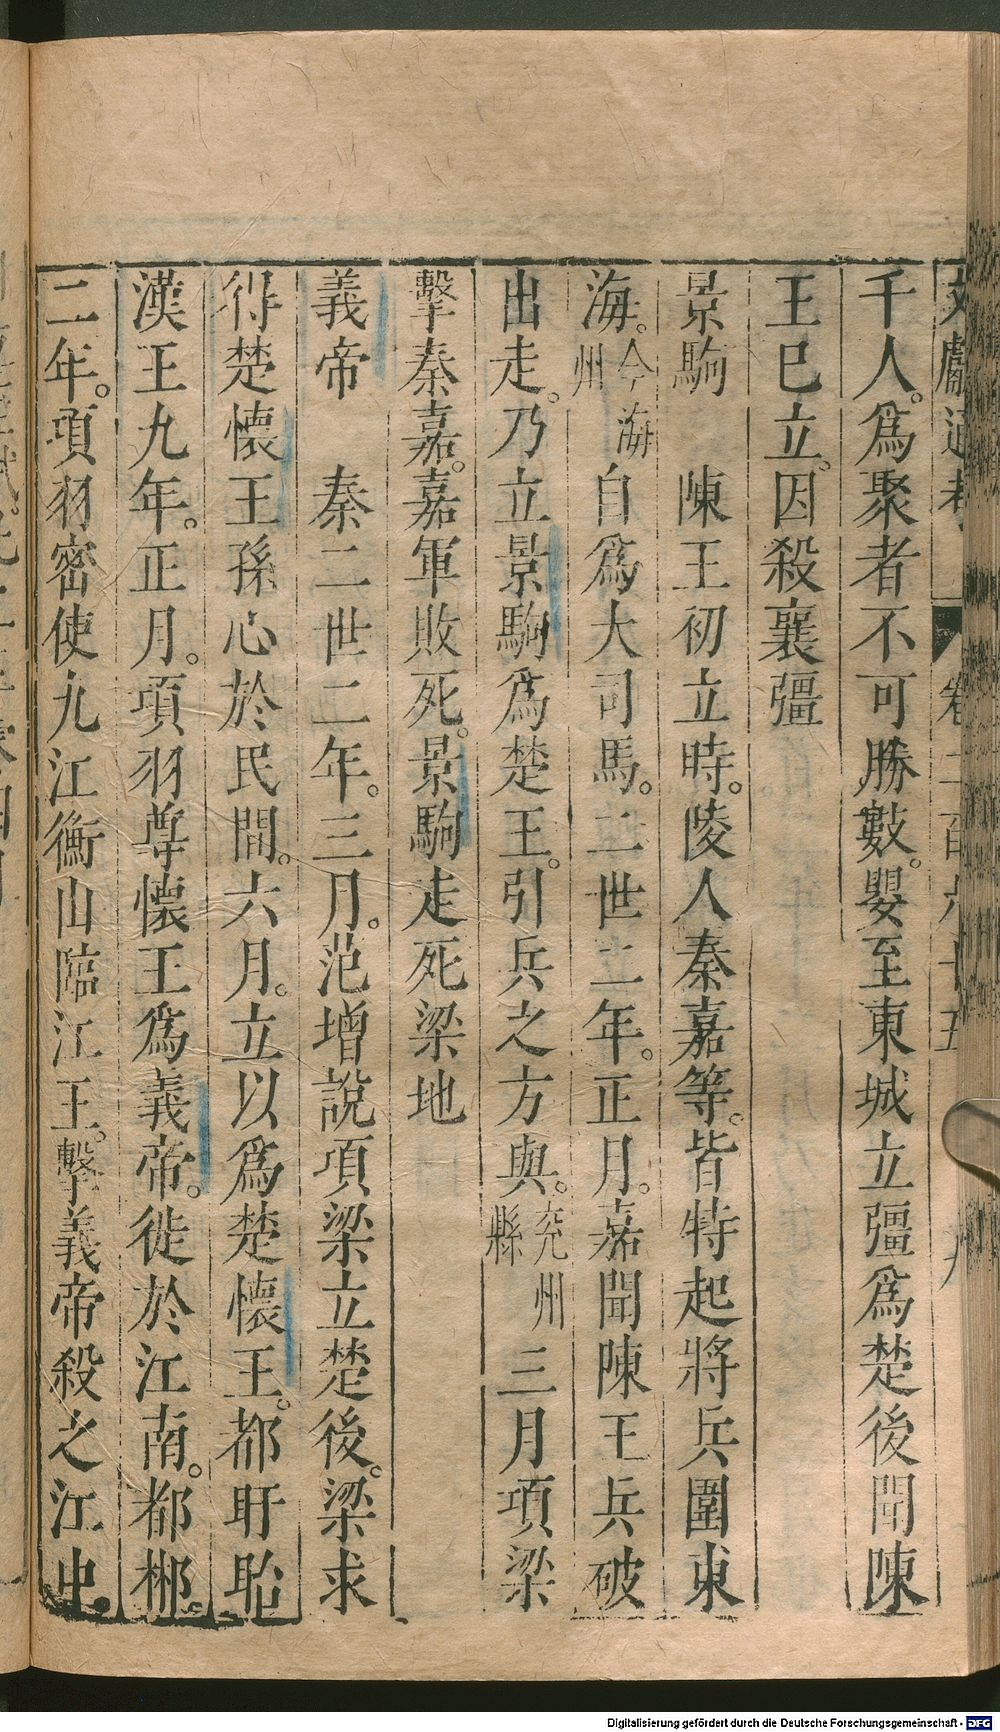 文獻通考 卷二百六十五
千人。爲聚者不可勝數。嬰至東城立彊爲楚後聞陳
王已立。因殺襄彊
景駒 陳王初立時。陵人秦嘉等。皆特起將兵圍東
海。今海州自爲大司馬。二世二年。正月。嘉聞陳王兵破
出走。乃立景駒爲楚王。引兵之方與。兖州縣三月項梁
擊秦嘉。嘉軍敗死。景駒走死梁地
義帝 秦二世二年。三月。范增說項梁立楚後。梁求
得楚懷王孫心於民間。六月。立以爲楚懷王。都盱眙
漢王九年。正月。項羽尊懷王爲義帝。徙於江南。都郴。
二年。項羽密使九江衡山臨江王。擊義帝殺之江中。
Digitalisierung gefördert durch die Deutsche Forschungsgemeinschaft - DFG